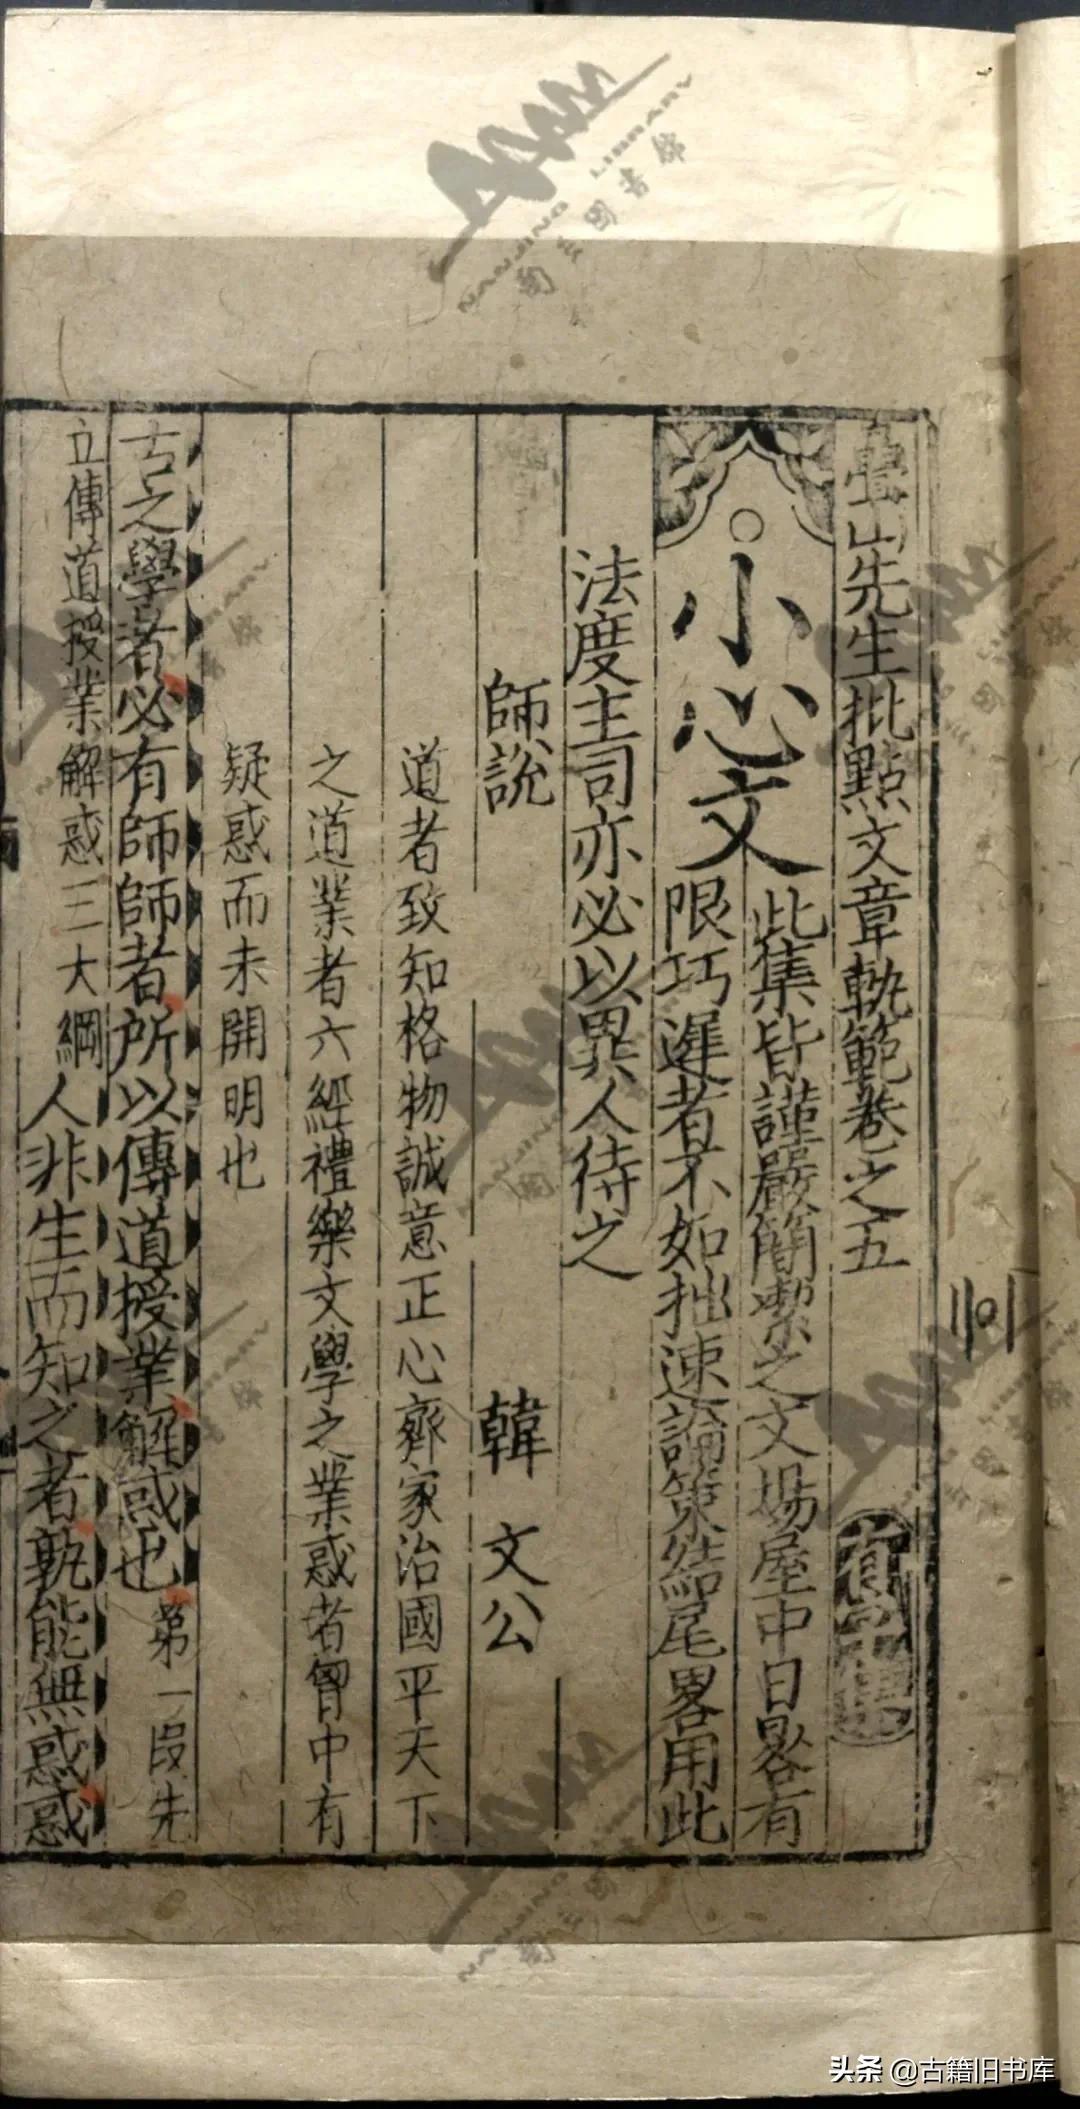 疊山先生批點文章軌範卷之五
小心文
此集皆謹嚴簡潔之文場屋中日晷有
限巧遲者不如拙速論策結尾畧用此
法度主司亦必以異人待之
師說 韓 文公
道者致知格物誠意正心齊家治國平天下
之道業者六經禮樂文學之業惑者胷中有
疑惑而未開明也
古之學者必有師師者所以傳道授業解惑也 第一段先
立傳道授業解惑三大綱 人非生而知之者孰能無惑惑
头条 @古籍旧书库